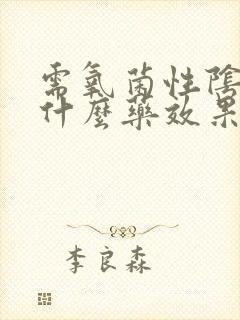 需氧菌性陰
什麼藥效果
李良森